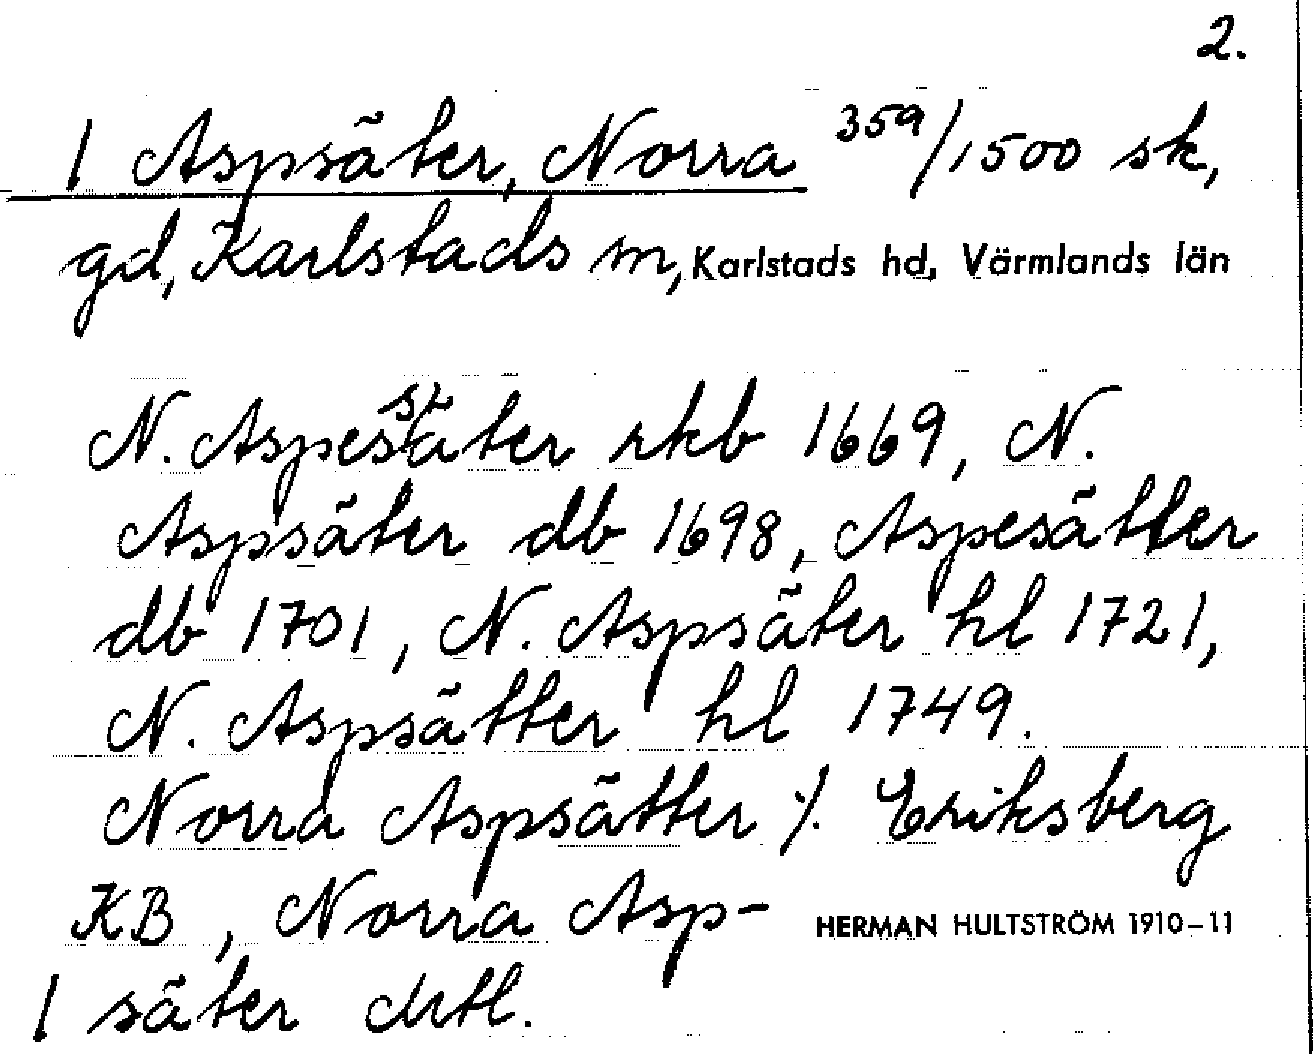 2.
| Aspsäter, Norra 359/1500 sk,
gd, Karlstads m, Karlstads hd, Värmlands län
N. Aspesäter rkb 1669, N.
Aspsäter db 1698, Aspesätter
db 1701, N. Aspsäter hl 1721,
N. Aspsätter hl 1749.
Norra Aspsätter ·/. Eriksberg
KB, Norra Asp- HERMAN HULTSTRÖM 1910–11
| säter Mtl.